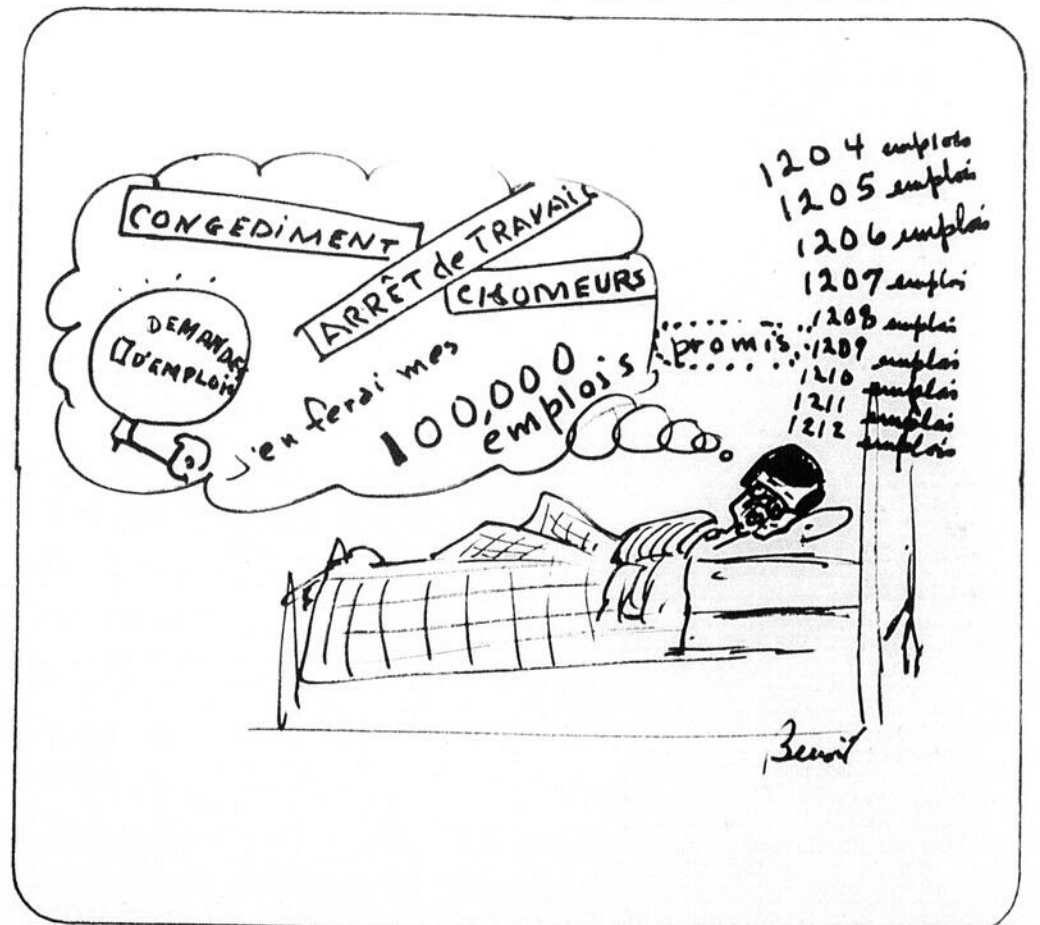 CONGEDIMENT
ARRÊT de TRAVAIL
CHOMEURS
DEMANDES
D'EMPLOIS
J'en ferai mes
100,000
emplois
promis
1204 emplois
1205 emplois
1206 emplois
1207 emplois
1208 emplois
1209 emplois
1210 emplois
1211 emplois
1212 emplois
Benoit